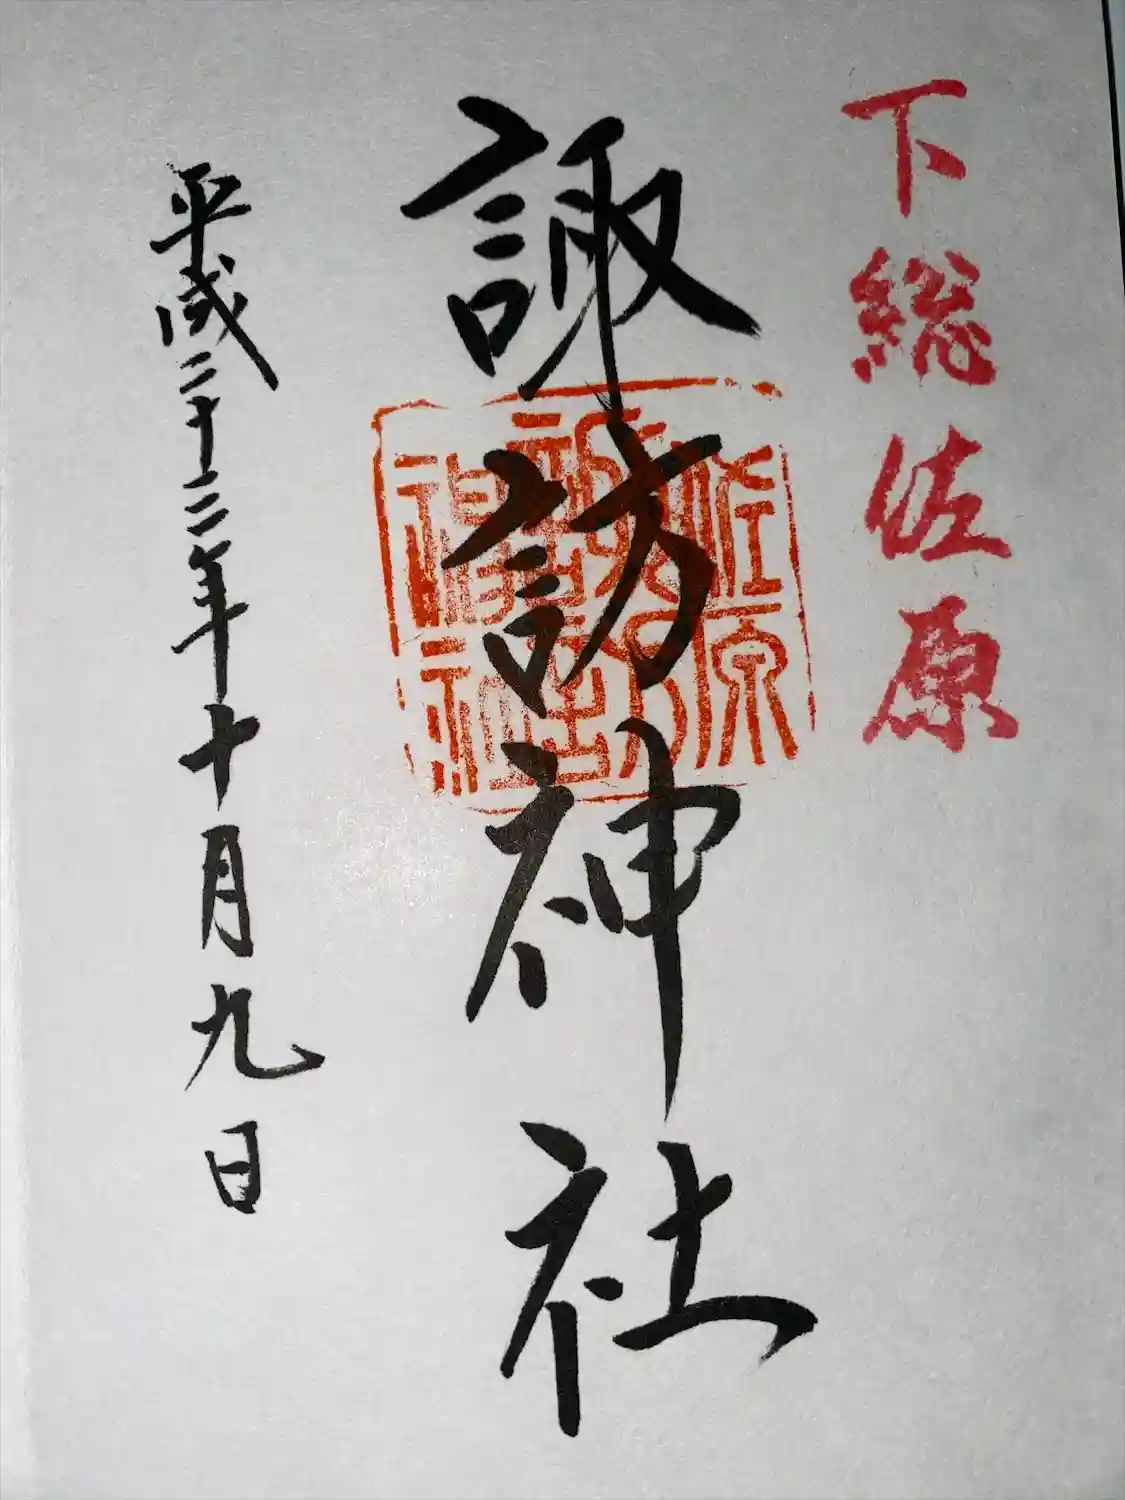 下総佐原
諏訪神社
佐原
諏訪
神社
平成二十三年十月九日